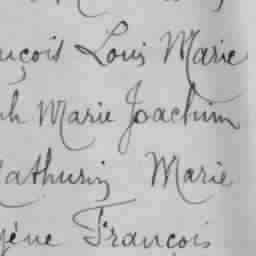 nçois Louis Marie
ph Marie Joachim
Mathurin Marie
gène François